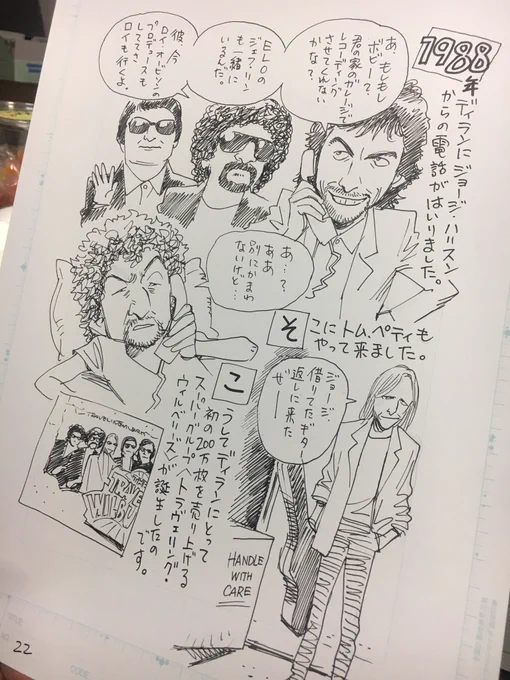 1988年
ディランにジョージ・ハリスン
からの電話がはいりました。
あ、もしもし
ボビー?、
君の家のガレージで
レコーディング
させてくんない
かな?、
ELOの
ジェフ・リン
も一緒に
いるんだ。
彼、今
ロイ・オービソンの
プロデュースも
してさ
ロイも行くよ。
あ…?
ああ
別にかまわ
ないけど…
そこにトム・ペティも
やって来ました。
ジョージ
借りてたギター
返しに来た
ぜー
こうしてディランにとって
初の200万枚を売り上げる
スーパーグループ、トラヴェリング・
ウィルベリーズが誕生したの
です。
HANDLE
WITH
CARE
22